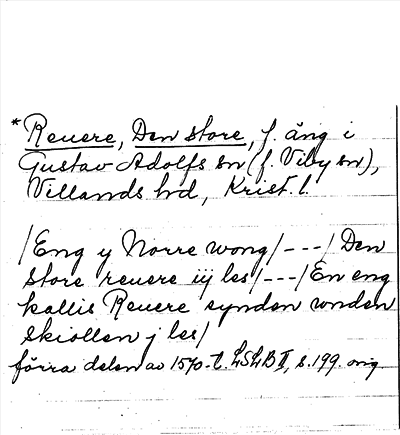 *Reuere, Den store, f. äng i
Gustav Adolfs sn (f. Viby sn),
Villands hd, Krist. l.
/Eng y Norre wong/---/ Den
store reuere iij les/---/ En eng
kallis Reuere synden wnden
Skiollen j les/
förra delen av 1570-t. LSLB II, s. 199. orig